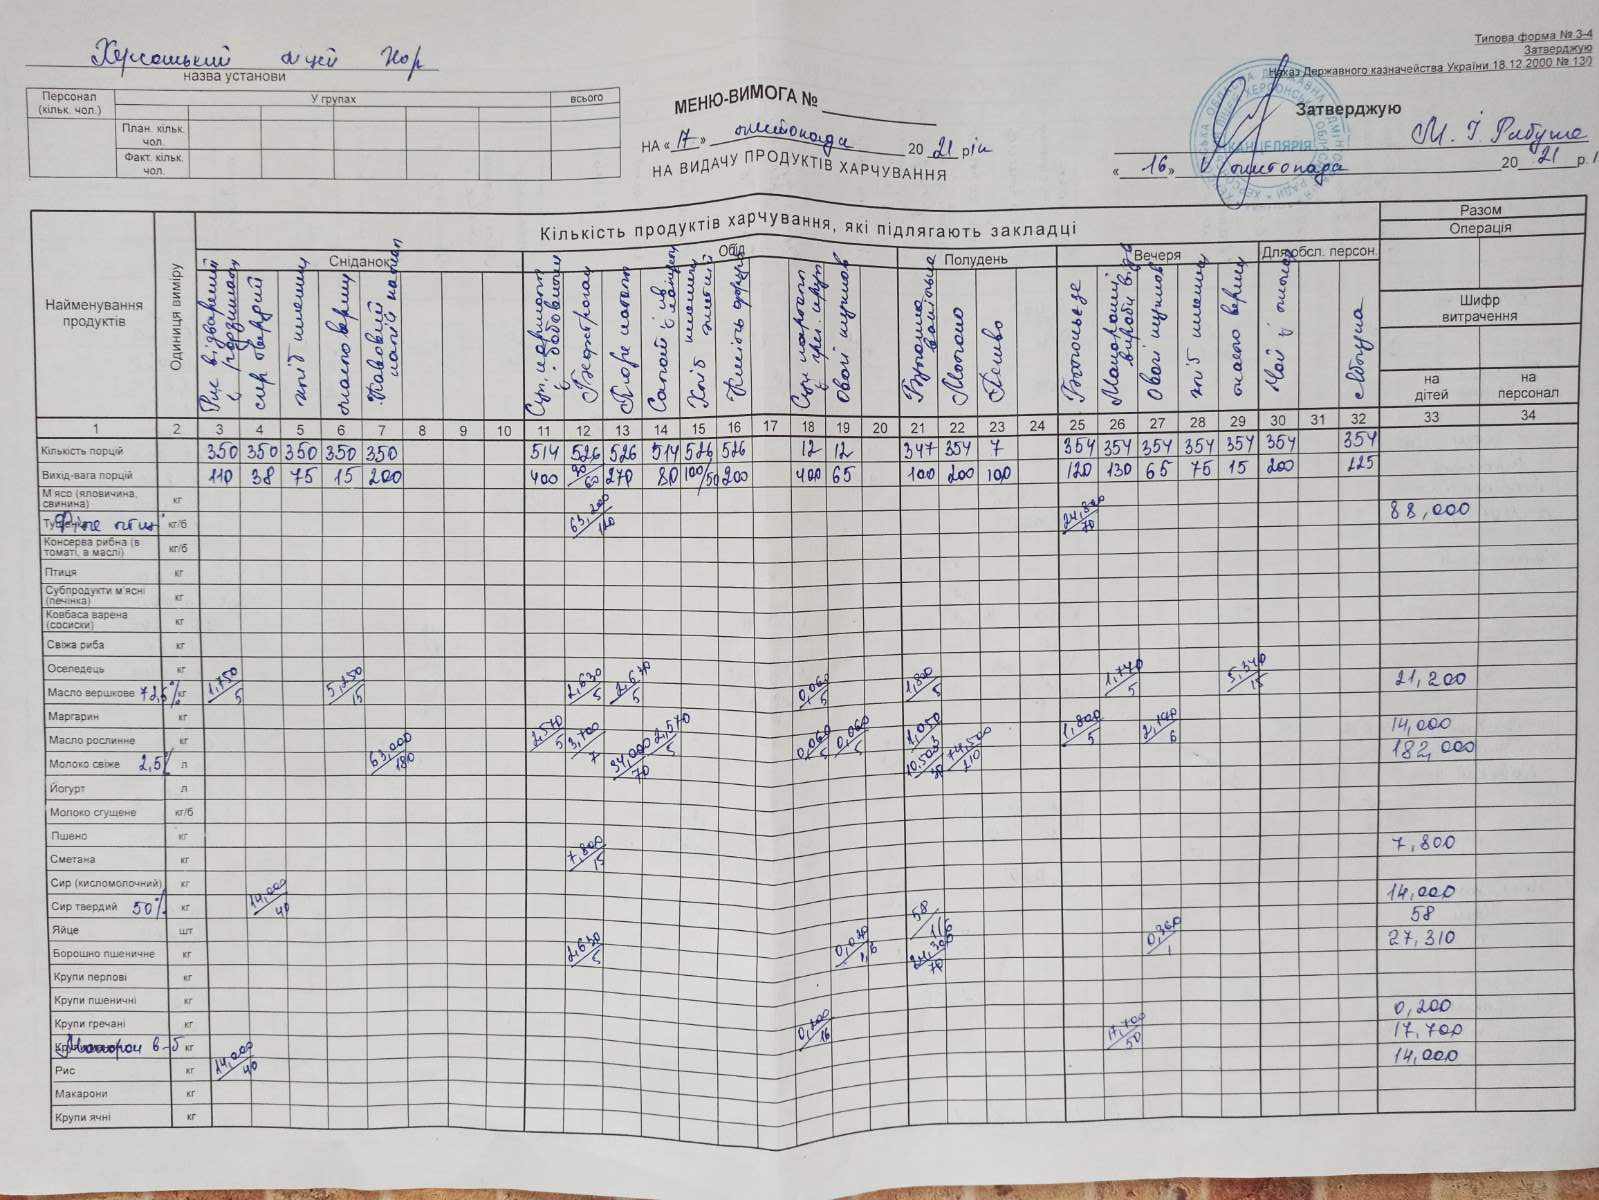 Типова форма № 3-4
Затверджую
Наказ Державного казначейства України 18.12.2000 № 130
Херсонський ліцей
назва установи
Персонал (кільк. чол.) У групах всього
План. кільк. чол.
Факт. кільк. чол.
МЕНЮ-ВИМОГА №
НА «17» листопада 2021 рік
НА ВИДАЧУ ПРОДУКТІВ ХАРЧУВАННЯ
Затверджую
М. І.
«16» листопада 2021 р.
КАНЦЕЛЯРІЯ
Найменування продуктів
Одиниця виміру
Кількість продуктів харчування, які підлягають закладці
Разом
Операція
Шифр витрачення
на дітей
на персонал
Сніданок Обід Полудень Вечеря Для обсл. персон.
Рис відварений з родзинками
сир твердий
хліб пшеничн
масло вершк
Какавовий напій
Картопляне пюре
Кисіль
Овочі тушков
Булочка ванільна
Молоко
Печиво
Макаронні вироби відв
Овочі тушков
хліб пшеничн
масло вершк
Чай з лимон
Яблука
1 2 3 4 5 6 7 8 9 10 11 12 13 14 15 16 17 18 19 20 21 22 23 24 25 26 27 28 29 30 31 32 33 34
Кількість порцій 350 350 350 350 350 514 526 526 514 526 526 12 12 347 354 7 354 354 354 354 354 354 354
Вихід-вага порцій 110 38 75 15 200 400 90/60 270 80 100/50 200 400 65 100 200 100 120 130 65 75 15 200 225
М'ясо (яловичина, свинина) кг
Філе птиці кг/б 63,200/120 24,800/70 88,000
Консерва рибна (в томаті, в маслі) кг/б
Птиця кг
Субпродукти м'ясні (печінка) кг
Ковбаса варена (сосиски) кг
Свіжа риба кг
Оселедець кг
Масло вершкове 72,5% кг 1,750/5 5,250/15 2,630/5 2,670/5 0,060/5 1,800/5 1,770/5 5,340/15 21,200
Маргарин кг
Масло рослинне кг 2,570/5 3,700/7 2,570/5 0,060/5 0,060/5 1,050/3 1,800/5 2,140/6 14,000
Молоко свіже 2,5% л 63,000/180 34,000/70 10,500/30 74,500/210 182,000
Йогурт л
Молоко сгущене кг/б
Пшено кг
Сметана кг 7,800/15 7,800
Сир (кисломолочний) кг
Сир твердий 50% кг 14,000/40 14,000
Яйце шт 58/1/6 58
Борошно пшеничне кг 2,630/5 0,020/1,6 24,300/70 0,360/1 27,310
Крупи перлові кг
Крупи пшеничні кг
Крупи гречані кг 0,200/16 0,200
Макарон в-б кг 17,700/50 17,700
Рис кг 14,000/40 14,000
Макарони кг
Крупи ячні кг